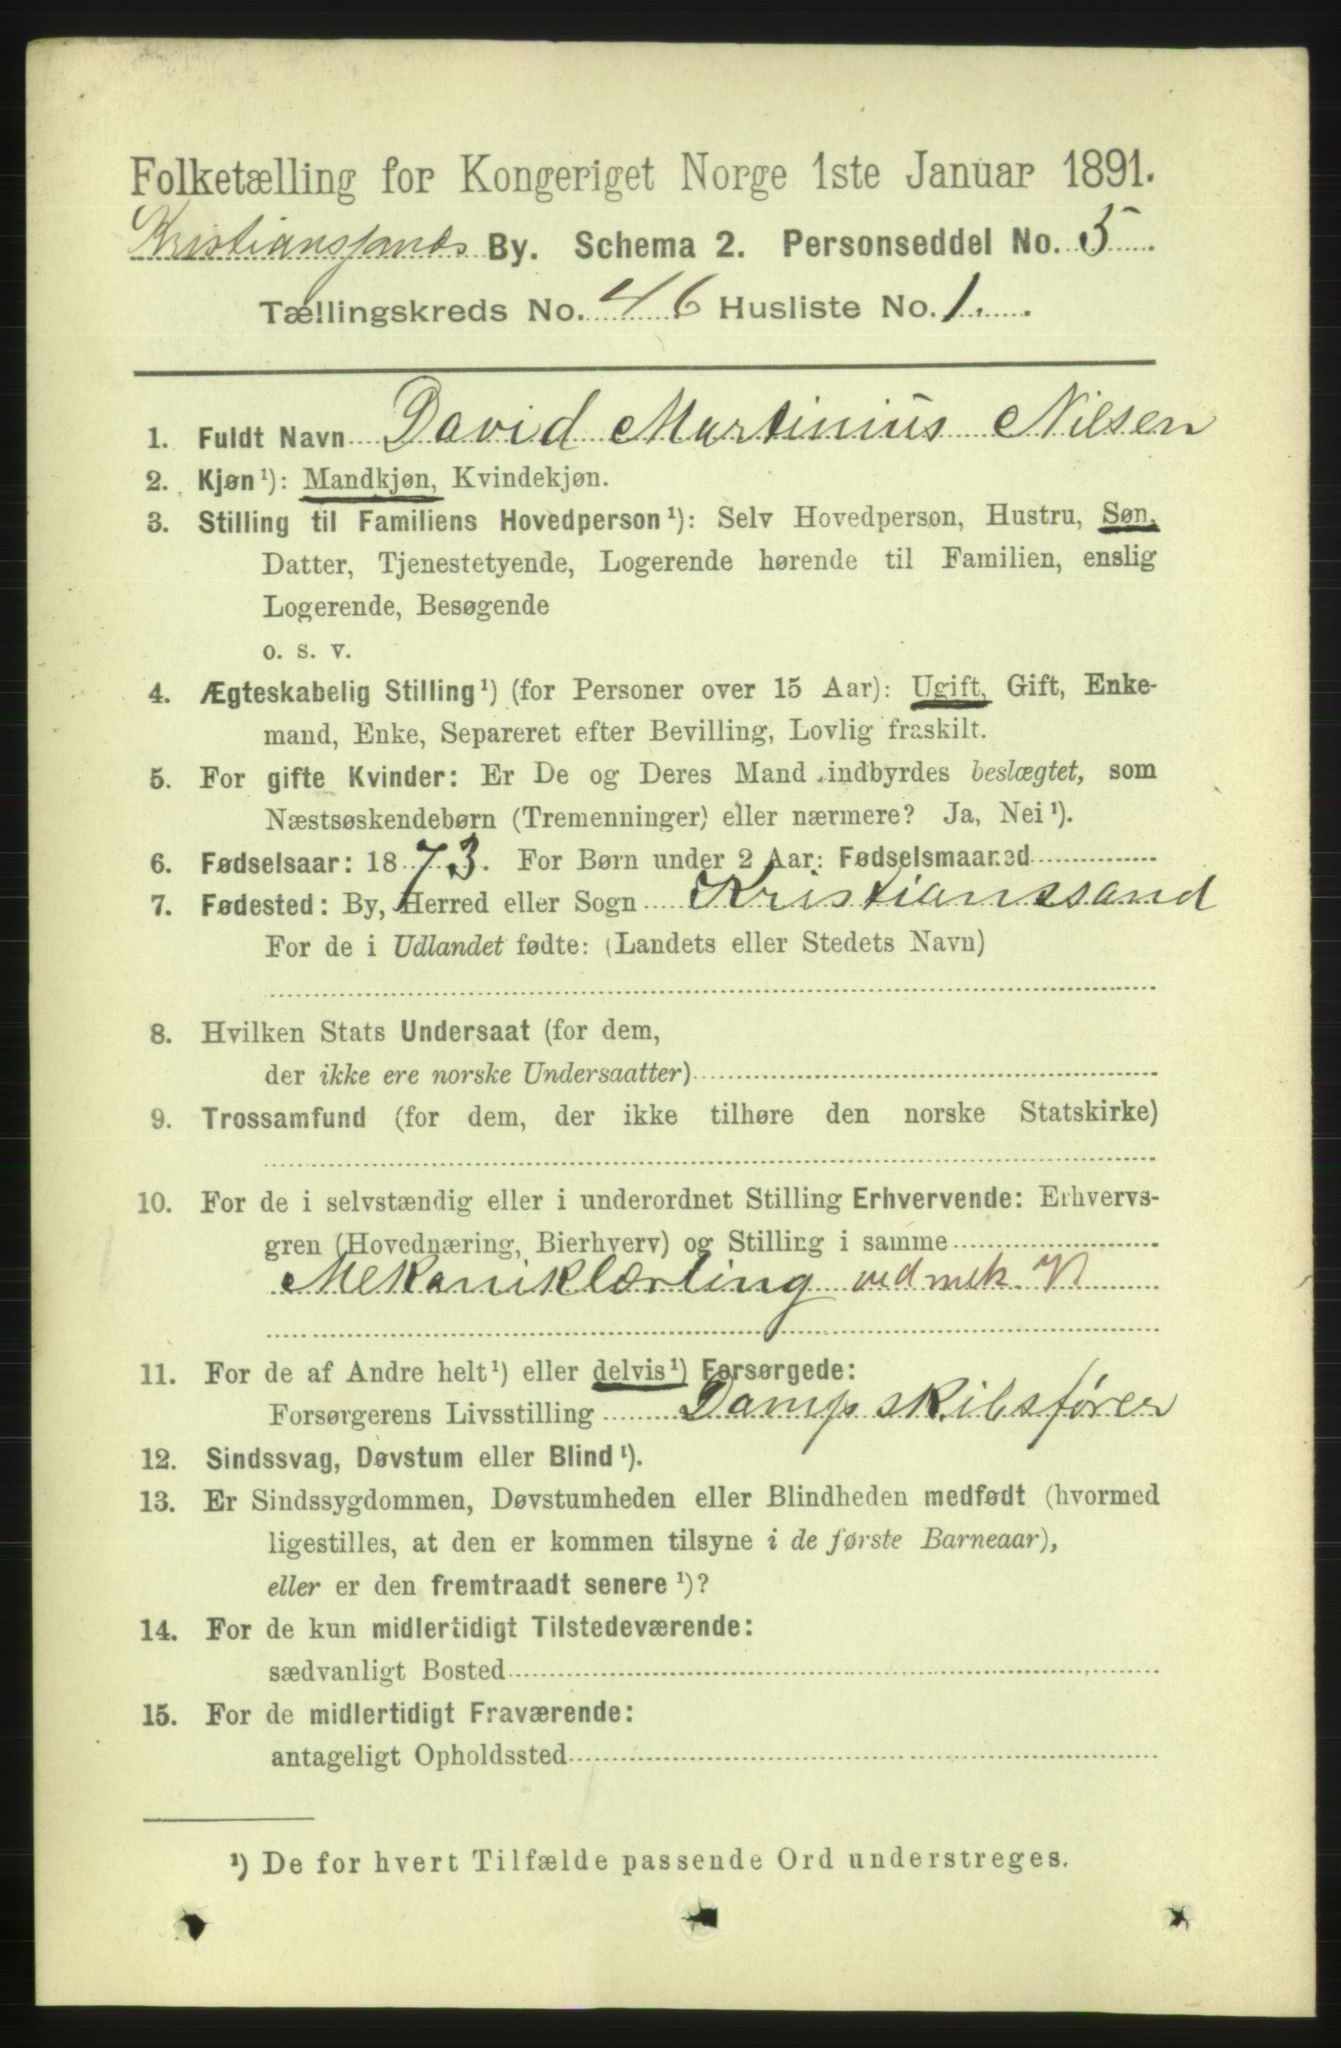 Folketælling for Kongeriget Norge 1ste Januar 1891.
Kristianssands By. Schema 2. Personseddel No. 5
Tællingskreds No. 46 Husliste No. 1.
1. Fuldt Navn David Martinius Nilsen
2. Kjøn ¹): Mandkjøn, Kvindekjøn.
3. Stilling til Familiens Hovedperson ¹): Selv Hovedperson, Hustru, Søn,
Datter, Tjenestetyende, Logerende hørende til Familien, enslig
Logerende, Besøgende
o. s. v.
4. Ægteskabelig Stilling ¹) (for Personer over 15 Aar): Ugift, Gift, Enke-
mand, Enke, Separeret efter Bevilling, Lovlig fraskilt.
5. For gifte Kvinder: Er De og Deres Mand indbyrdes beslægtet, som
Næstsøskendebørn (Tremenninger) eller nærmere? Ja, Nei ¹).
6. Fødselsaar: 1873. For Børn under 2 Aar: Fødselsmaaned
7. Fødested: By, Herred eller Sogn Kristianssand
For de i Udlandet fødte: (Landets eller Stedets Navn)
8. Hvilken Stats Undersaat (for dem,
der ikke ere norske Undersaatter)
9. Trossamfund (for dem, der ikke tilhøre den norske Statskirke)
10. For de i selvstændig eller i underordnet Stilling Erhvervende: Erhvervs-
gren (Hovednæring, Bierhverv) og Stilling i samme
Mekaniklærling ved mek. V
11. For de af Andre helt ¹) eller delvis ¹) Forsørgede:
Forsørgerens Livsstilling Dampskibsfører
12. Sindssvag, Døvstum eller Blind ¹).
13. Er Sindssygdommen, Døvstumheden eller Blindheden medfødt (hvormed
ligestilles, at den er kommen tilsyne i de første Barneaar),
eller er den fremtraadt senere ¹)?
14. For de kun midlertidigt Tilstedeværende:
sædvanligt Bosted
15. For de midlertidigt Fraværende:
antageligt Opholdssted
¹) De for hvert Tilfælde passende Ord understreges.